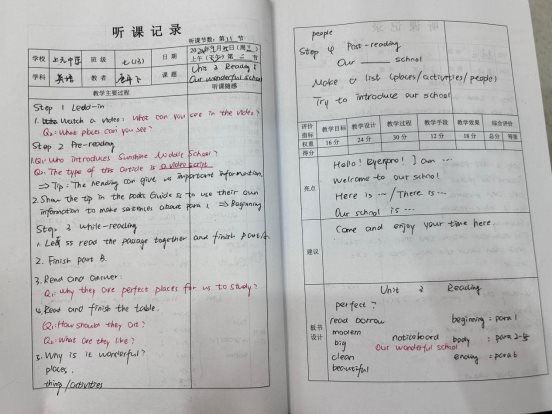 听课记录
听课节数：第11节
学校 上元中学 班级 七(13) 日期 2024年9月25日(周三)
上午(下午)第二节
学科 英语 教者 课题 Unit 2 Reading 1
Our wonderful school
教学主要过程 听课随感
Step 1 Lead-in
1. Watch a video: What can you see in the video?
Q2: What place can you see?
Step 2 Pre-reading
1. Q1: Who introduces Sunshine Middle School?
Q2: The type of this article is a video script.
⇒ Tip: The heading can give us important information.
2. Show the tip in the Guide Ss to use their own
information to make sentences about para 1. ⇒ Beginning
Step 3 While-reading
1. Let Ss read the passage together and finish part
2. Finish part B.
3. Read and answer:
Q1: Why they are perfect places for us to study?
4. Read and finish the table.
Q1: How should they are?
Q2: What are they like?
5. Why is it wonderful?
places,
thing / activities
people
Step 4 Post-reading
Our school
Make a list (places/activities/people)
Try to introduce our school
评价指标 教学目标 教学设计 教学过程 教学手段 教学效果 综合评价
权重 16分 24分 30分 12分 18分 总分 等第
得分
亮点
Hello! I am ...
Welcome to our school
Here is ... / There is ...
Our school is ...
建议
Come and enjoy your time here.
板书设计
Unit 2 Reading
perfect?
read borrow beginning: para 1
modern noticeboard body: para 2-5
big Our wonderful school
clean ending: para 6
beautiful